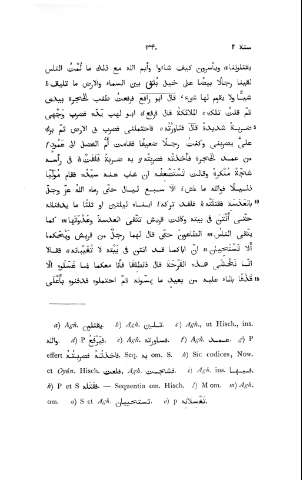 سنة ٢ ١٣٤٠
يقتلوننا ويأسرون كيف شاءوا وأيم الله مع ذلك ما لمت الناس
لقينا رجلًا بيضًا على خيل بلق بين السماء والارض ما تليق
شيئًا ولا يقوم لها شىء قال ابو رافع فرفعت طنب الحجرة بيدى
ثم قلت تلك الملائكة قال فرفع ابو لهب يده فضرب وجهى
ضربة شديدة قال فثاورته فاحتملنى فضرب فى الارض ثم برك
علىّ يضربنى وكنت رجلًا ضعيفًا فقامت أم الفضل الى عمود
من عمد الحجرة فأخذته فضربته به ضربة فلقت فى رأسه
شجّة منكرة وقالت تستضعفه ان غاب عنه سيّده فقام مولّيًا
ذليلًا فوالله ما عاش الّا سبع ليال حتى رماه الله عز وجل
بالعدسة فقتلته فلقد تركه ابناه ليلتين او ثلثًا ما يدفنانه
حتى أنتن فى بيته وكانت قريش تتّقى العدسة وعدوتها كما
يتّقى الناس الطاعون حتى قال لهما رجل من قريش ويحكما
ألا تستحييان ان اباكما قد انتن فى بيته لا تغيّبانه فقالا
انّا نخشى هذه القرحة قال فانطلقا فأنا معكما فما غسلوه الّا
قذفًا بالماء عليه من بعيد ما يمسّونه ثم احتملوه فدفنوه بأعلى
a) Agh. يقتلون. b) Agh. تليق. c) Agh., ut Hisch., ins.
والله. d) P فيرفع. e) Agh. فساورته. f) Agh. عمد. g) P
effert فأخذته فضربته. Seq. به om. S. h) Sic codices, Now.
et Oyún. Hisch. فلعت, Agh. فشجت. i) Agh. ins. فيها.
k) P et S فقتله. — Sequentia om. Hisch. l) M om. m) Agh.
om. n) S et Agh. تستحيان. o) P